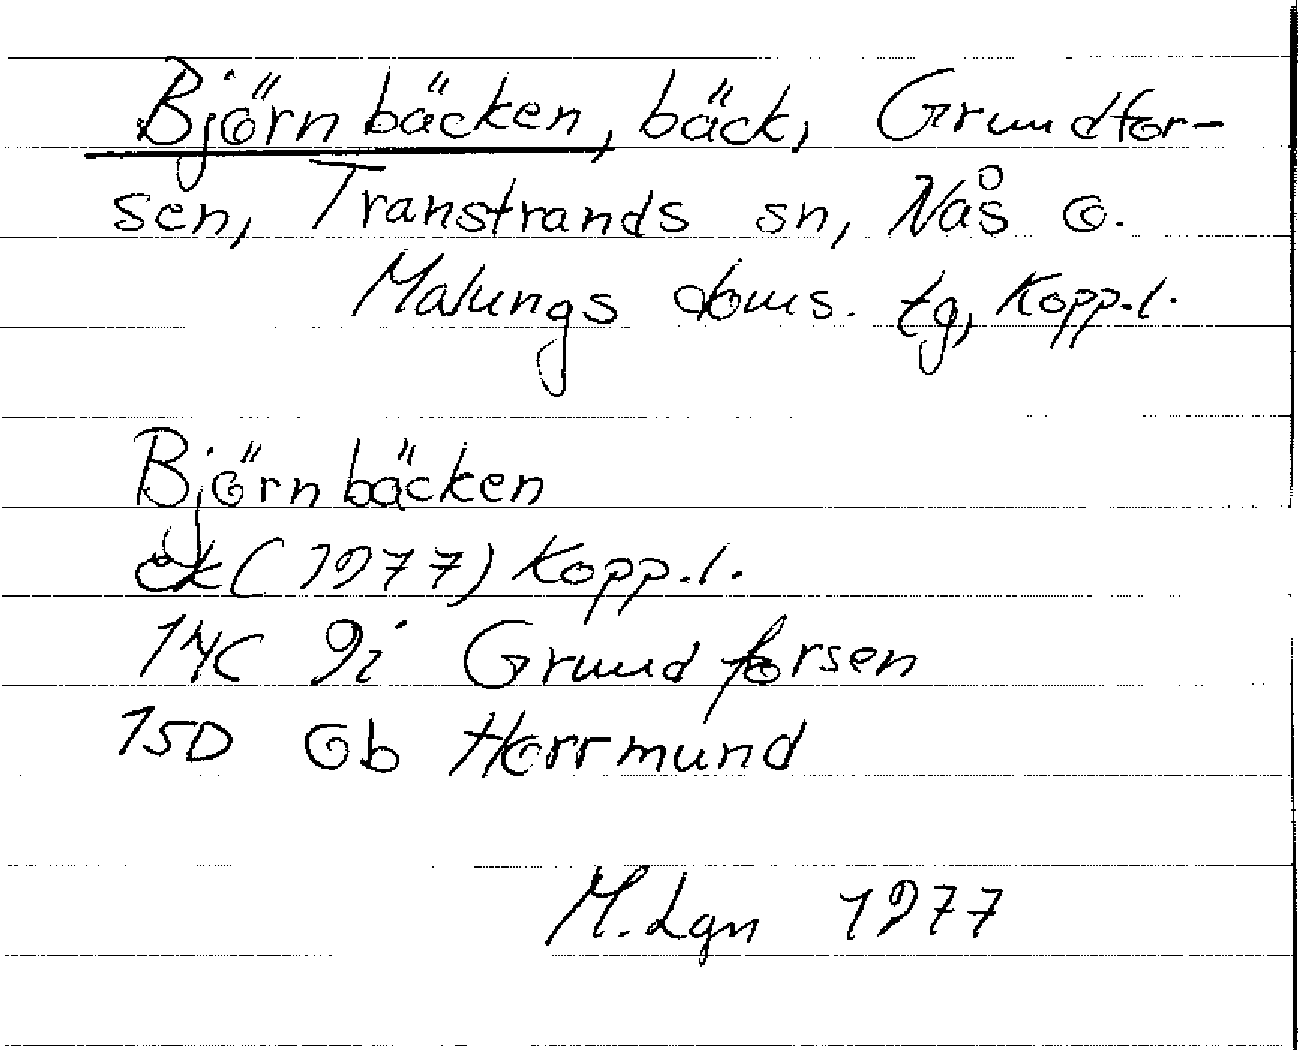 Björnbäcken, bäck, Grundfor-
sen, Transtrands sn, Nås o.
Malungs doms. tg, Kopp.l.
Björnbäcken
ek (1977) Kopp.l.
14C 9i Grundforsen
15D 0b Horrmund
M.Lgn 1977